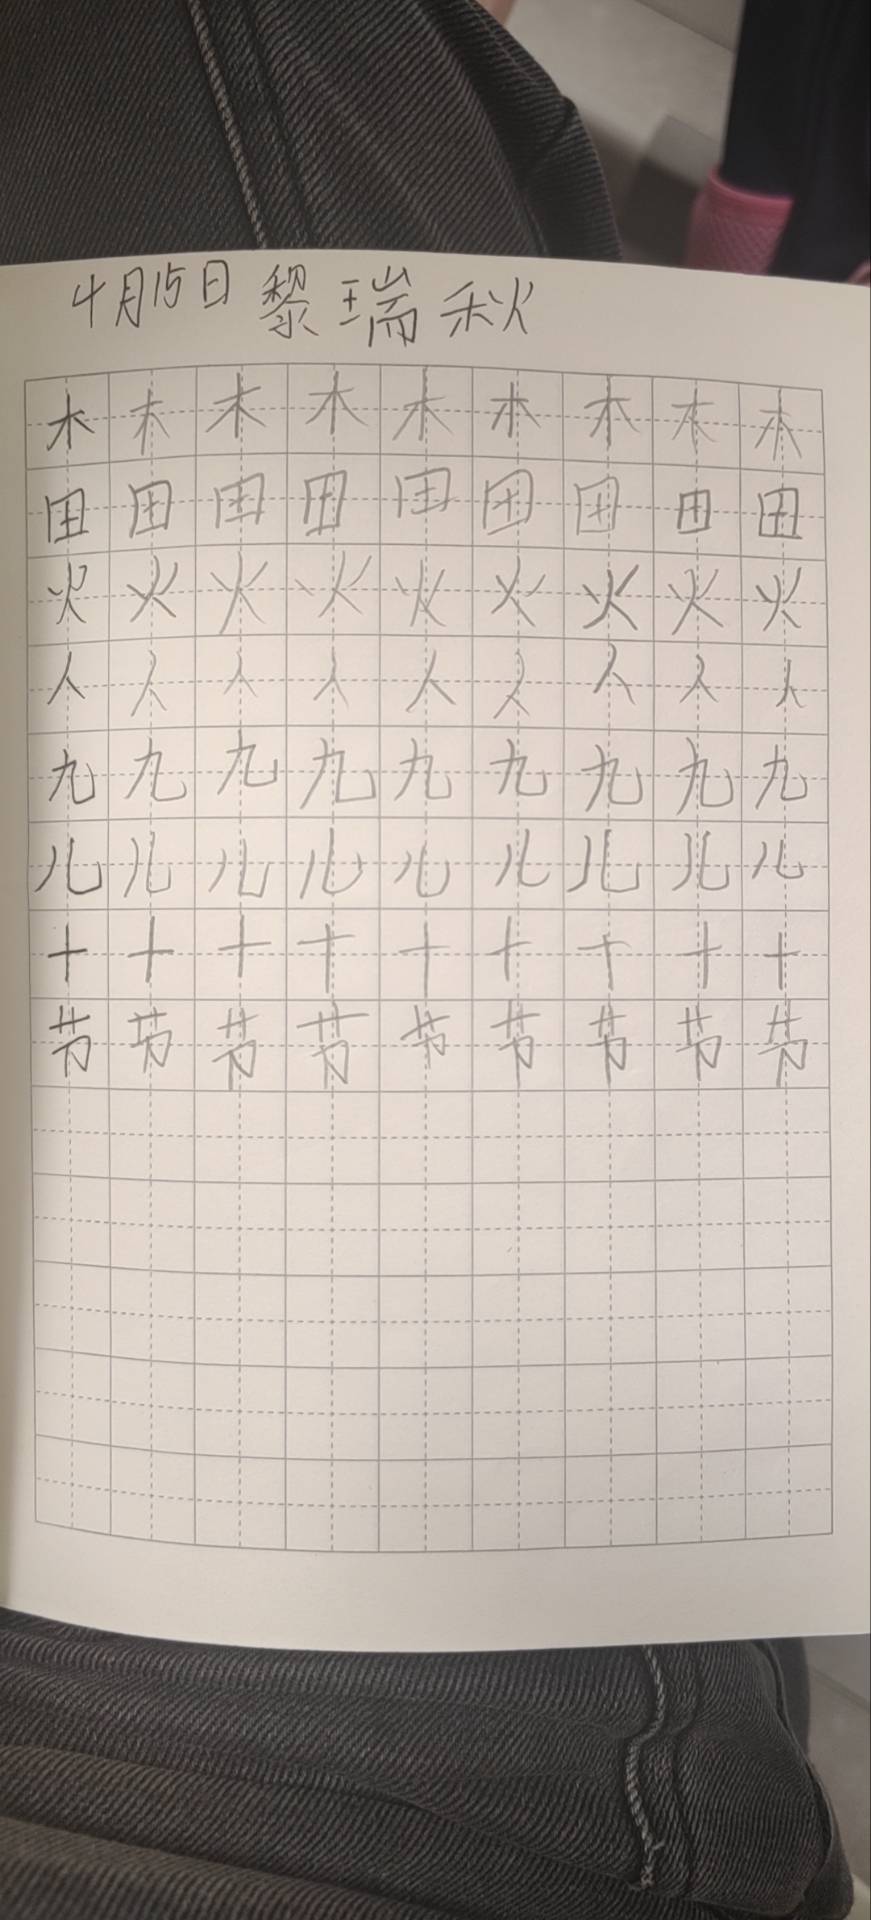 4月15日 黎瑞秋
木木木木木木木木木
田田田田田田田田田
火火火火火火火火火
人人人人人人人人人
九九九九九九九九九
儿儿儿儿儿儿儿儿儿
十十十十十十十十十
节节节节节节节节节